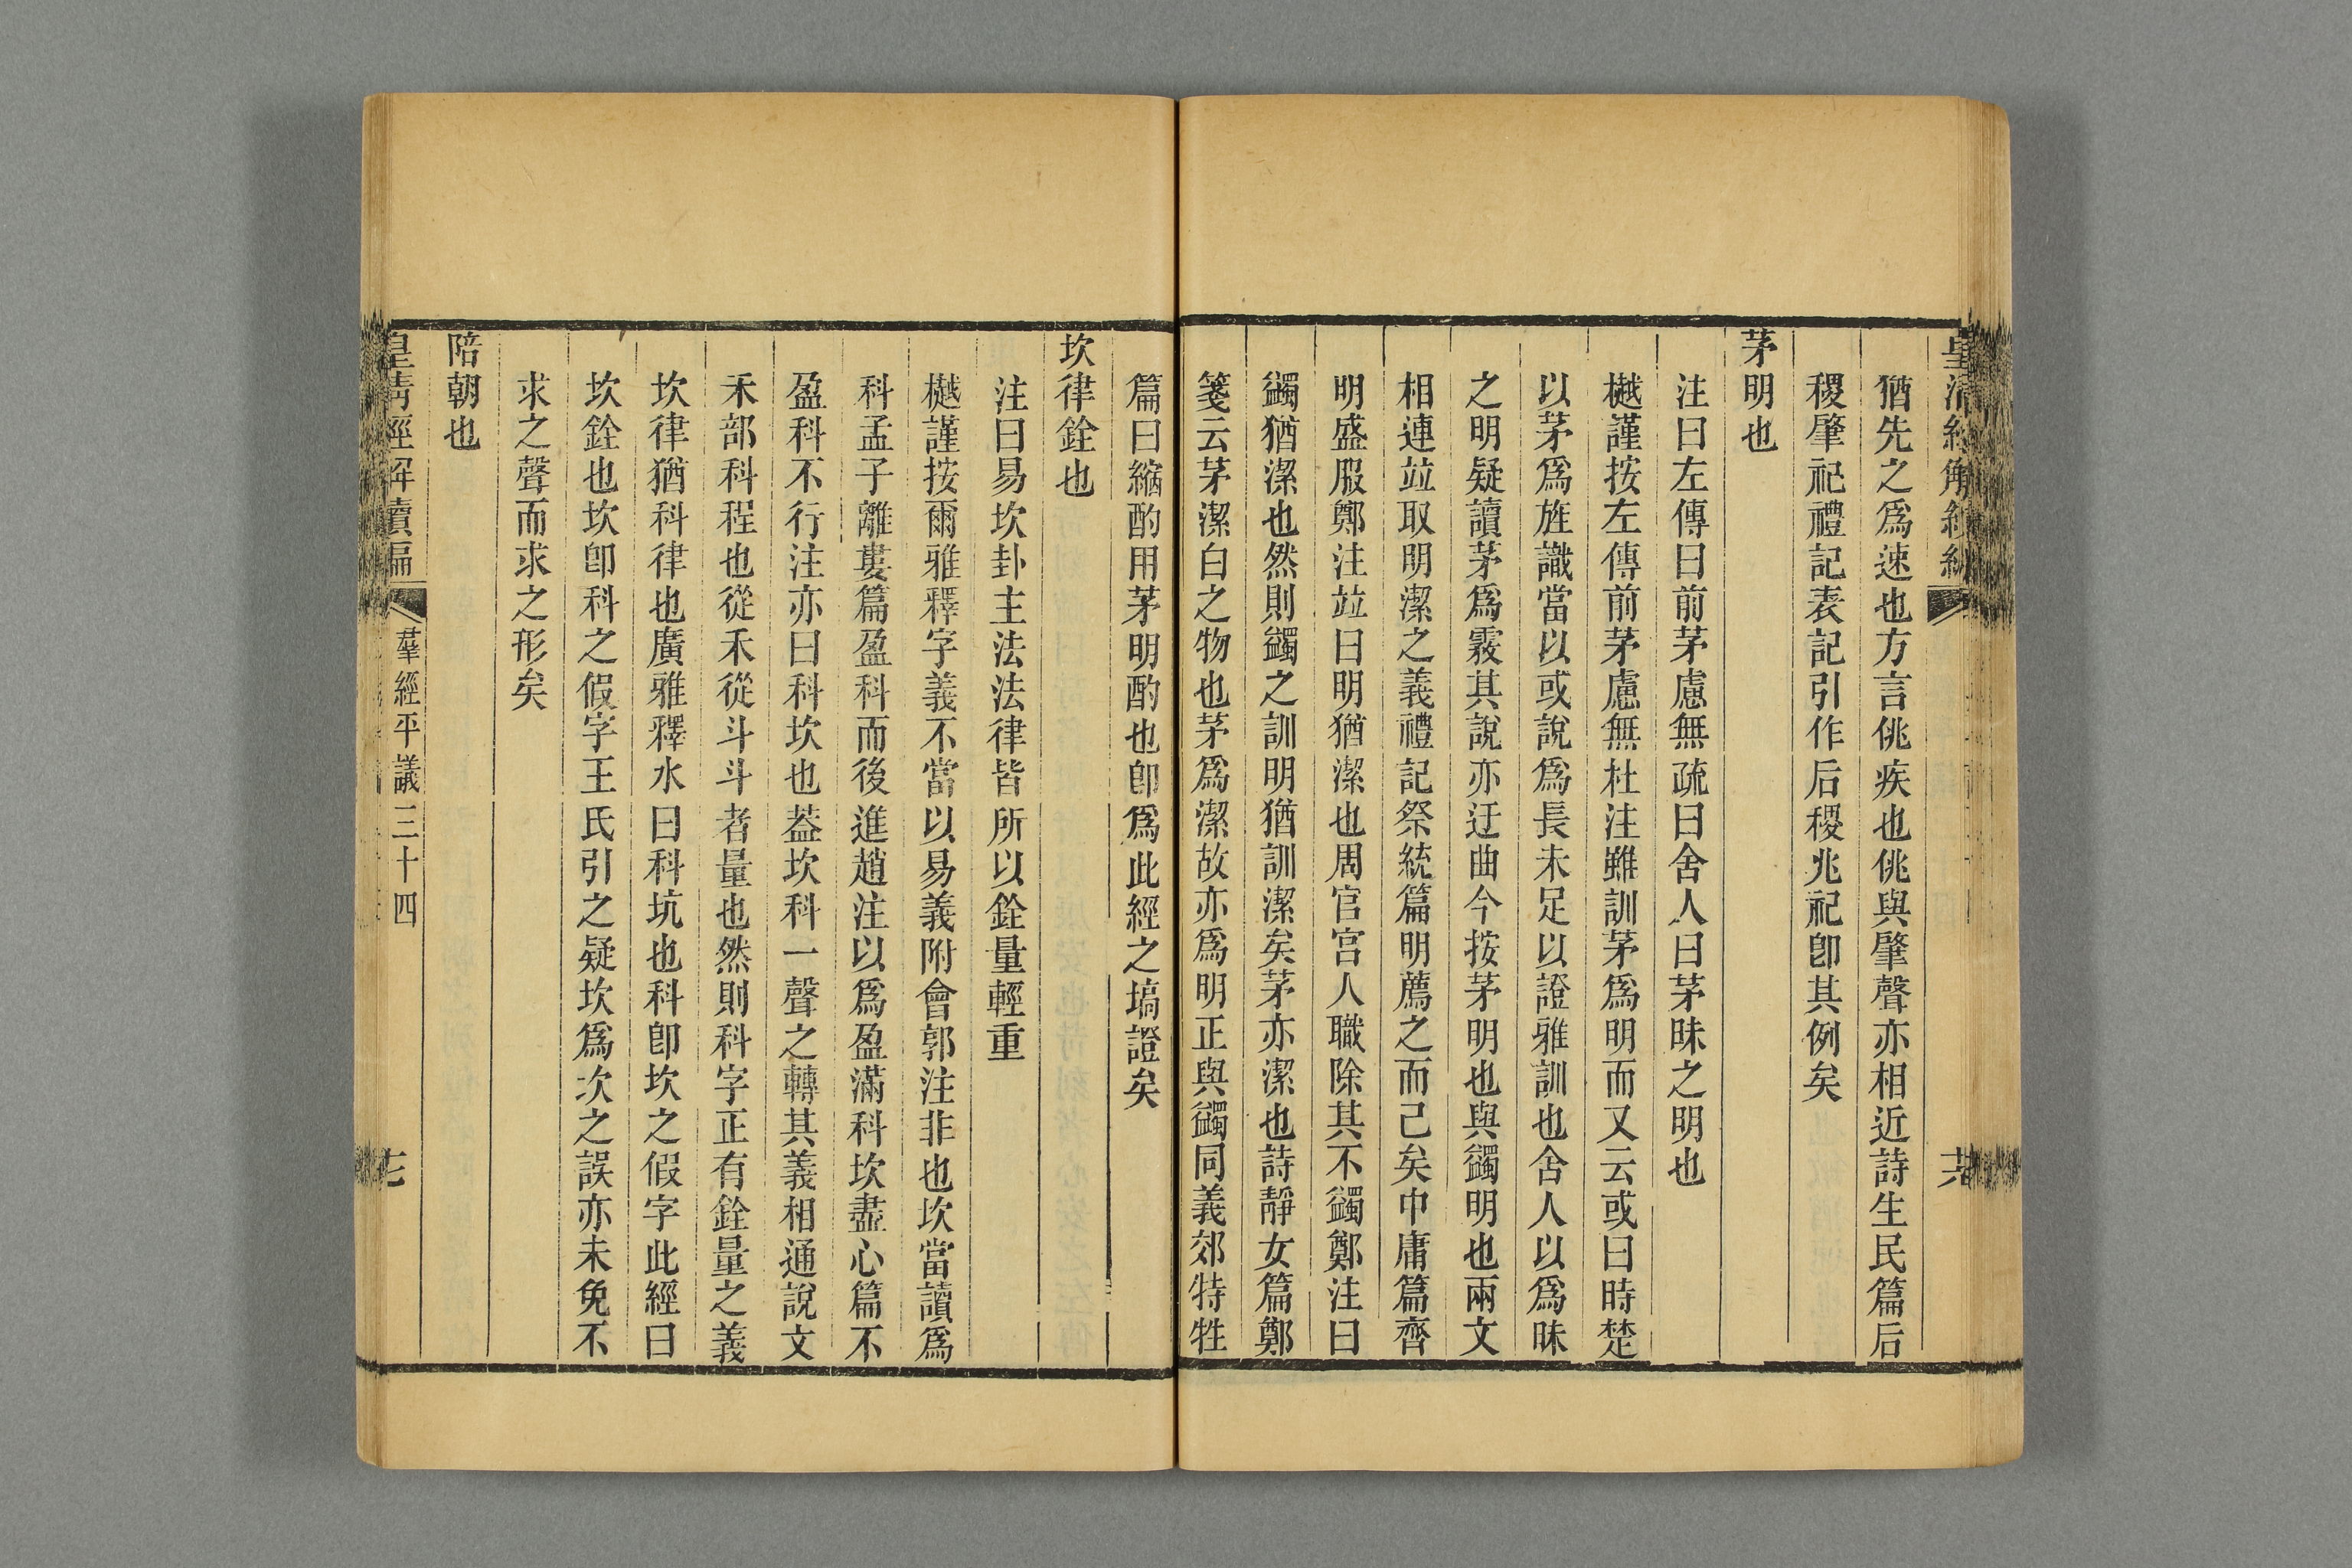 猶先之爲速也方言佻疾也佻與肇聲亦相近詩生民篇后
稷肇祀禮記表記引作后稷兆祀卽其例矣
茅明也
注曰左傳曰前茅慮無疏曰舍人曰茅昧之明也
樾謹按左傳前茅慮無杜注雖訓茅爲明而又云或曰時楚
以茅爲旌識當以或說爲長未足以證雅訓也舍人以爲昧
之明疑讀茅爲霧其說亦迂曲今按茅明也與蠲明也兩文
相連竝取明潔之義禮記祭統篇明薦之而已矣中庸篇齊
明盛服鄭注竝曰明猶潔也周官宮人職除其不蠲鄭注曰
蠲猶潔也然則蠲之訓明猶訓潔矣茅亦潔也詩靜女篇鄭
箋云茅潔白之物也茅爲潔故亦爲明正與蠲同義郊特牲
篇曰縮酌用茅明酌也卽爲此經之塙證矣
坎律銓也
注曰易坎卦主法法律皆所以銓量輕重
樾謹按爾雅釋字義不當以易義附會郭注非也坎當讀爲
科孟子離婁篇盈科而後進趙注以爲盈滿科坎盡心篇不
盈科不行注亦曰科坎也葢坎科一聲之轉其義相通說文
禾部科程也從禾從斗斗者量也然則科字正有銓量之義
坎律猶科律也廣雅釋水曰科坑也科卽坎之假字此經曰
坎銓也坎卽科之假字王氏引之疑坎爲次之誤亦未免不
求之聲而求之形矣
陪朝也
皇淸經解續編
羣經平議三十四